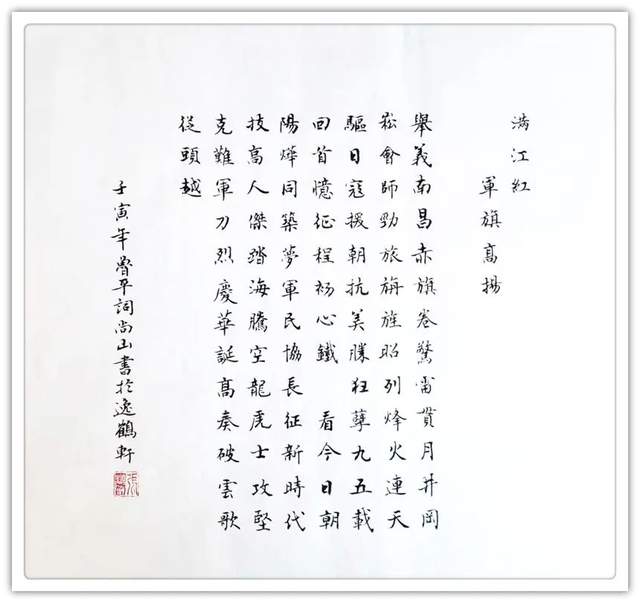 满江紅
軍旗高揚
舉義南昌赤旗卷驚雷貫月井岡
崧會師勁旅旃旌昭列烽火連天
驅日寇援朝抗美狂孽九五載
回首憶征程初心鐵 看今日朝
陽燁同築夢軍民協長征新時代
技高人傑踏海騰空龍虎士攻堅
克難軍刀烈慶華誕高奏破雲歌
從頭越
壬寅年平詞尚山書於逸鶴軒